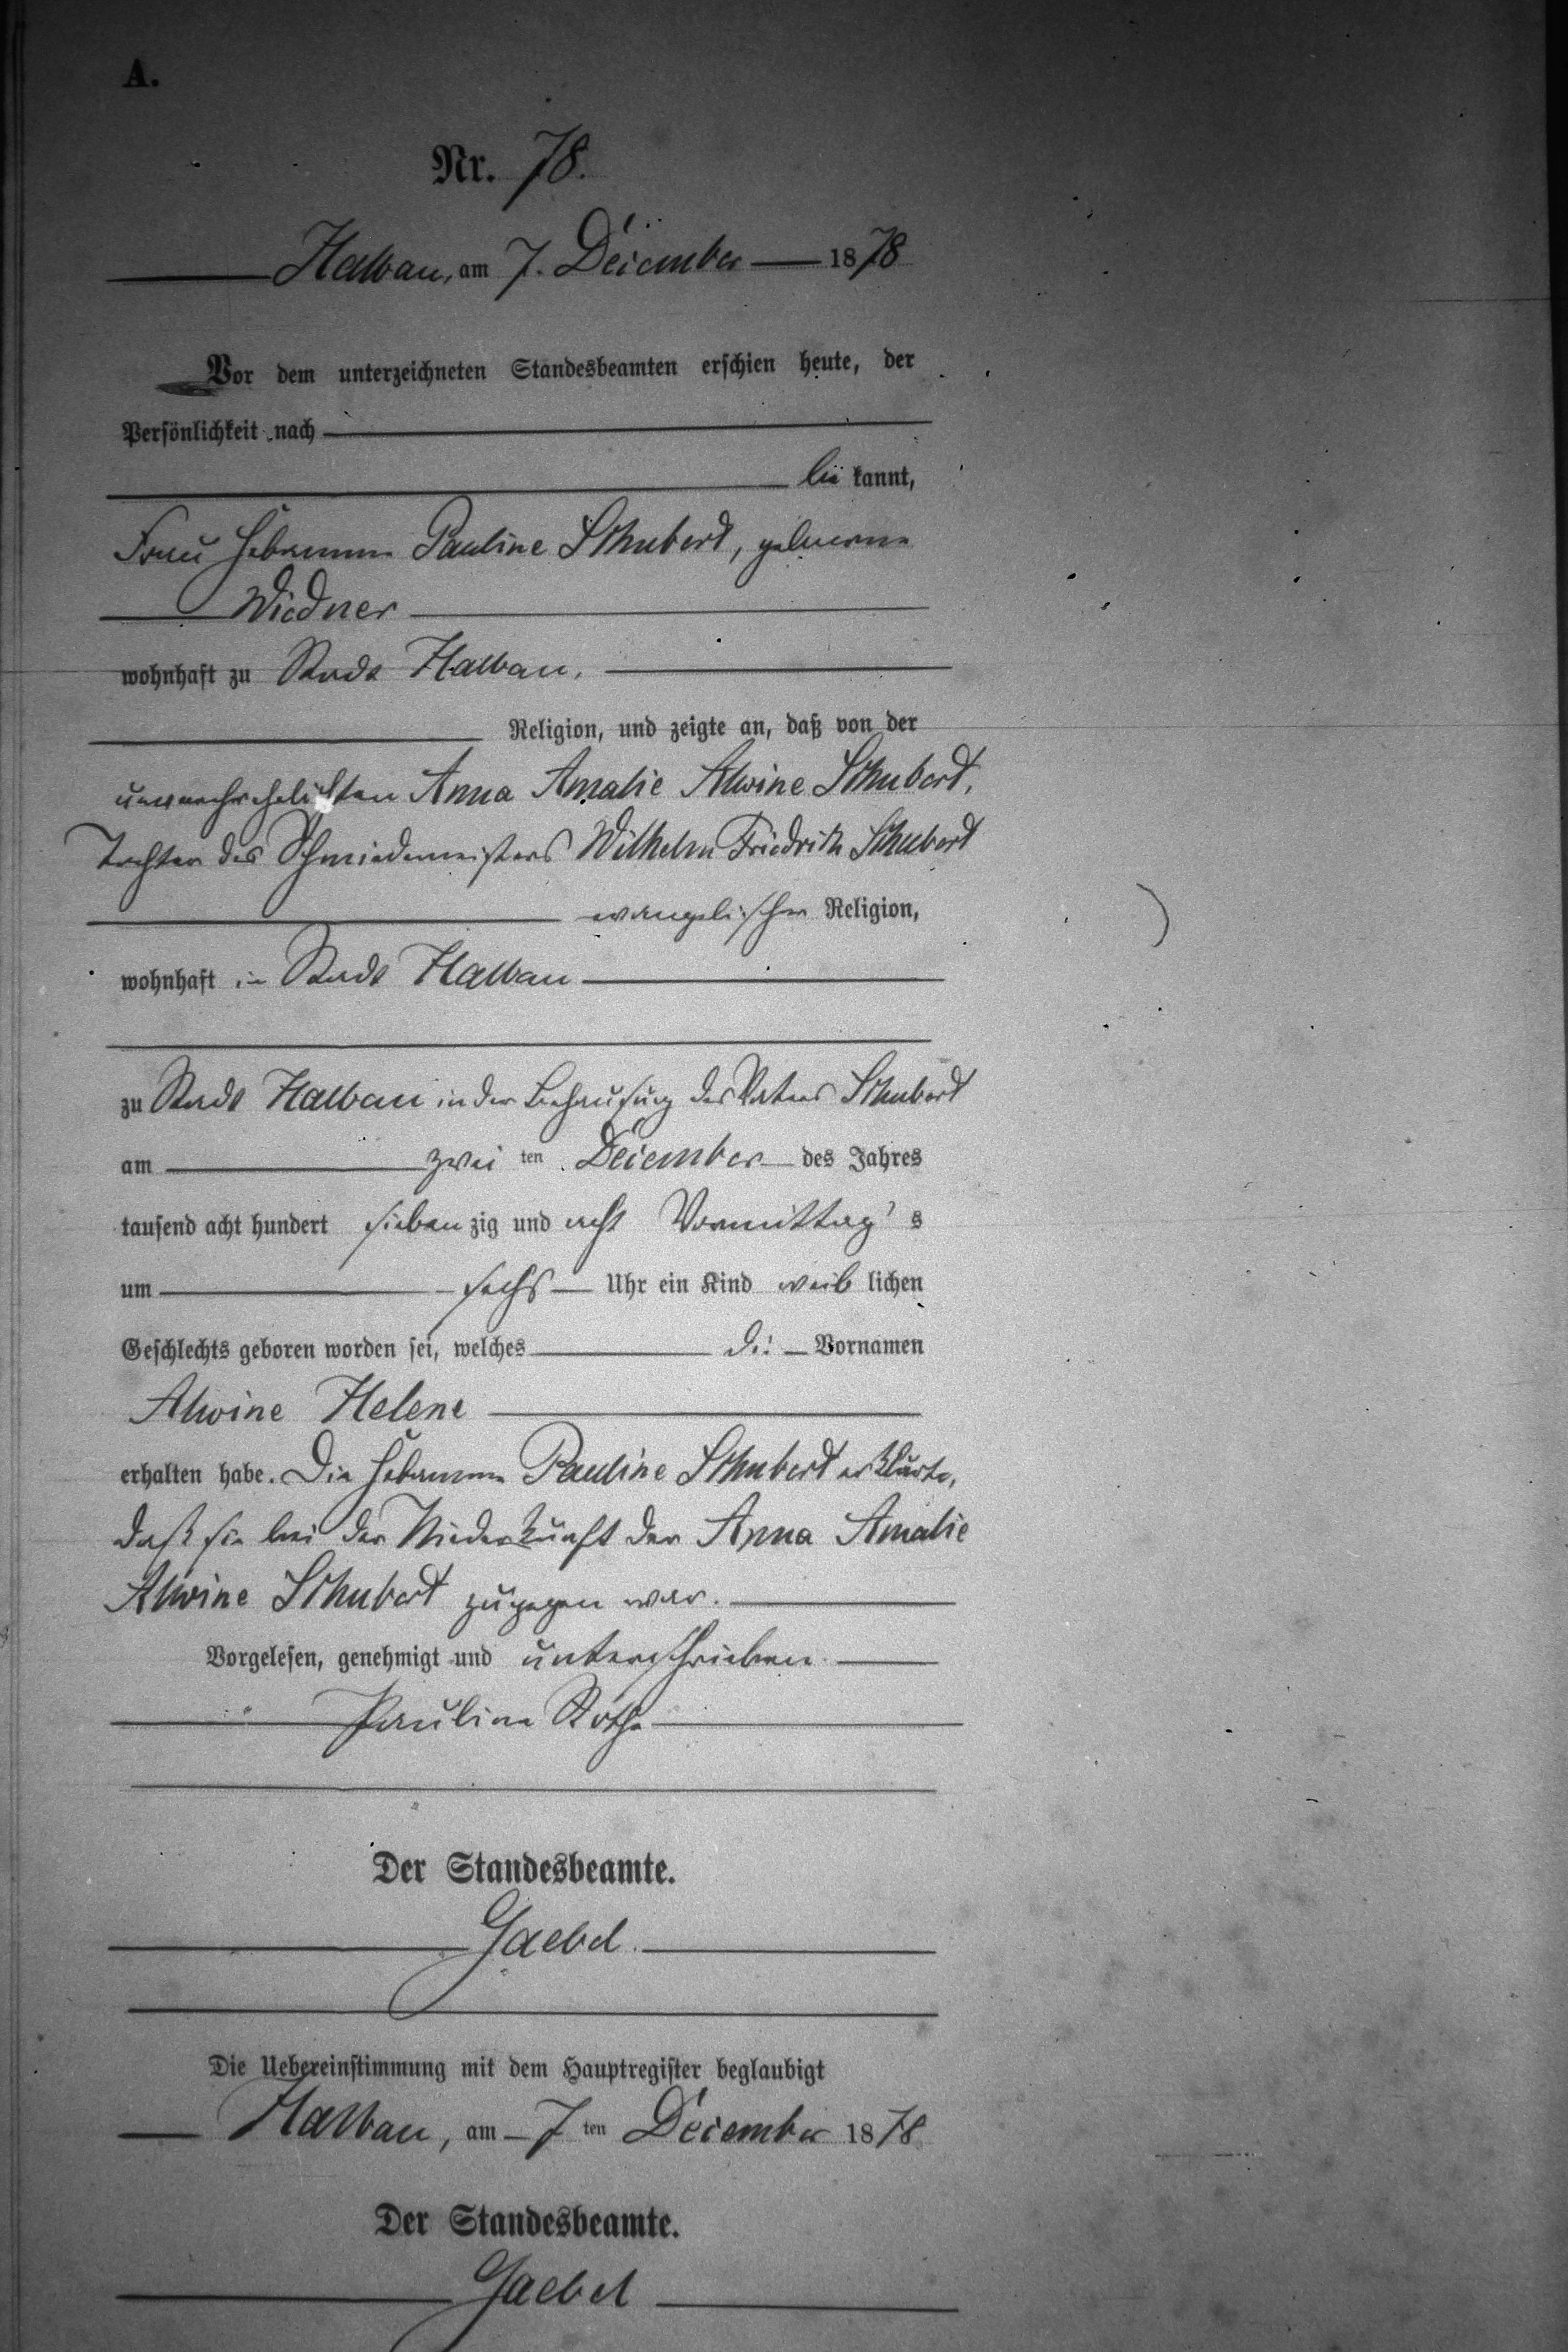 A.
Nr. 78.
Halbau, am 7. December 1878
Vor dem unterzeichneten Standesbeamten erschien heute, der
Persönlichkeit nach
be kannt,
Frau Hebamme Pauline Schubert, geborene
Wiedner
wohnhaft zu Stadt Halbau.
Religion, und zeigte an, daß von der
unverehelichten Anna Amalie Alwine Schubert,
Tochter des Schmiedemeisters Wilhelm Friedrich Schubert
evangelischer Religion,
wohnhaft in Stadt Halbau
zu Stadt Halbau in der Behausung des Vaters Schubert
am zwei ten December des Jahres
tausend acht hundert sieben zig und acht Vormittag s
um sechs Uhr ein Kind weib lichen
Geschlechts geboren worden sei, welches die Vornamen
Alwine Helene
erhalten habe. Die Hebamme Pauline Schubert erklärte,
daß sie bei der Niederkunft der Anna Amalie
Alwine Schubert zugegen war.
Vorgelesen, genehmigt und unterschrieben
Pauline
Der Standesbeamte.
Gaebel.
Die Uebereinstimmung mit dem Hauptregister beglaubigt
Halbau, am 7 ten December 1878
Der Standesbeamte.
Gaebel